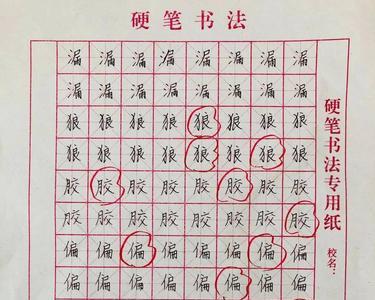 硬笔书法
漏漏漏漏漏漏漏漏
漏漏漏漏漏漏漏漏
狼狼狼狼狼狼狼狼
狼狼狼狼狼狼狼狼
胶胶胶胶胶胶胶胶
胶胶胶胶胶胶胶胶
偏偏偏偏偏偏偏偏
偏偏偏偏偏偏偏偏
硬笔书法专用纸
校名：